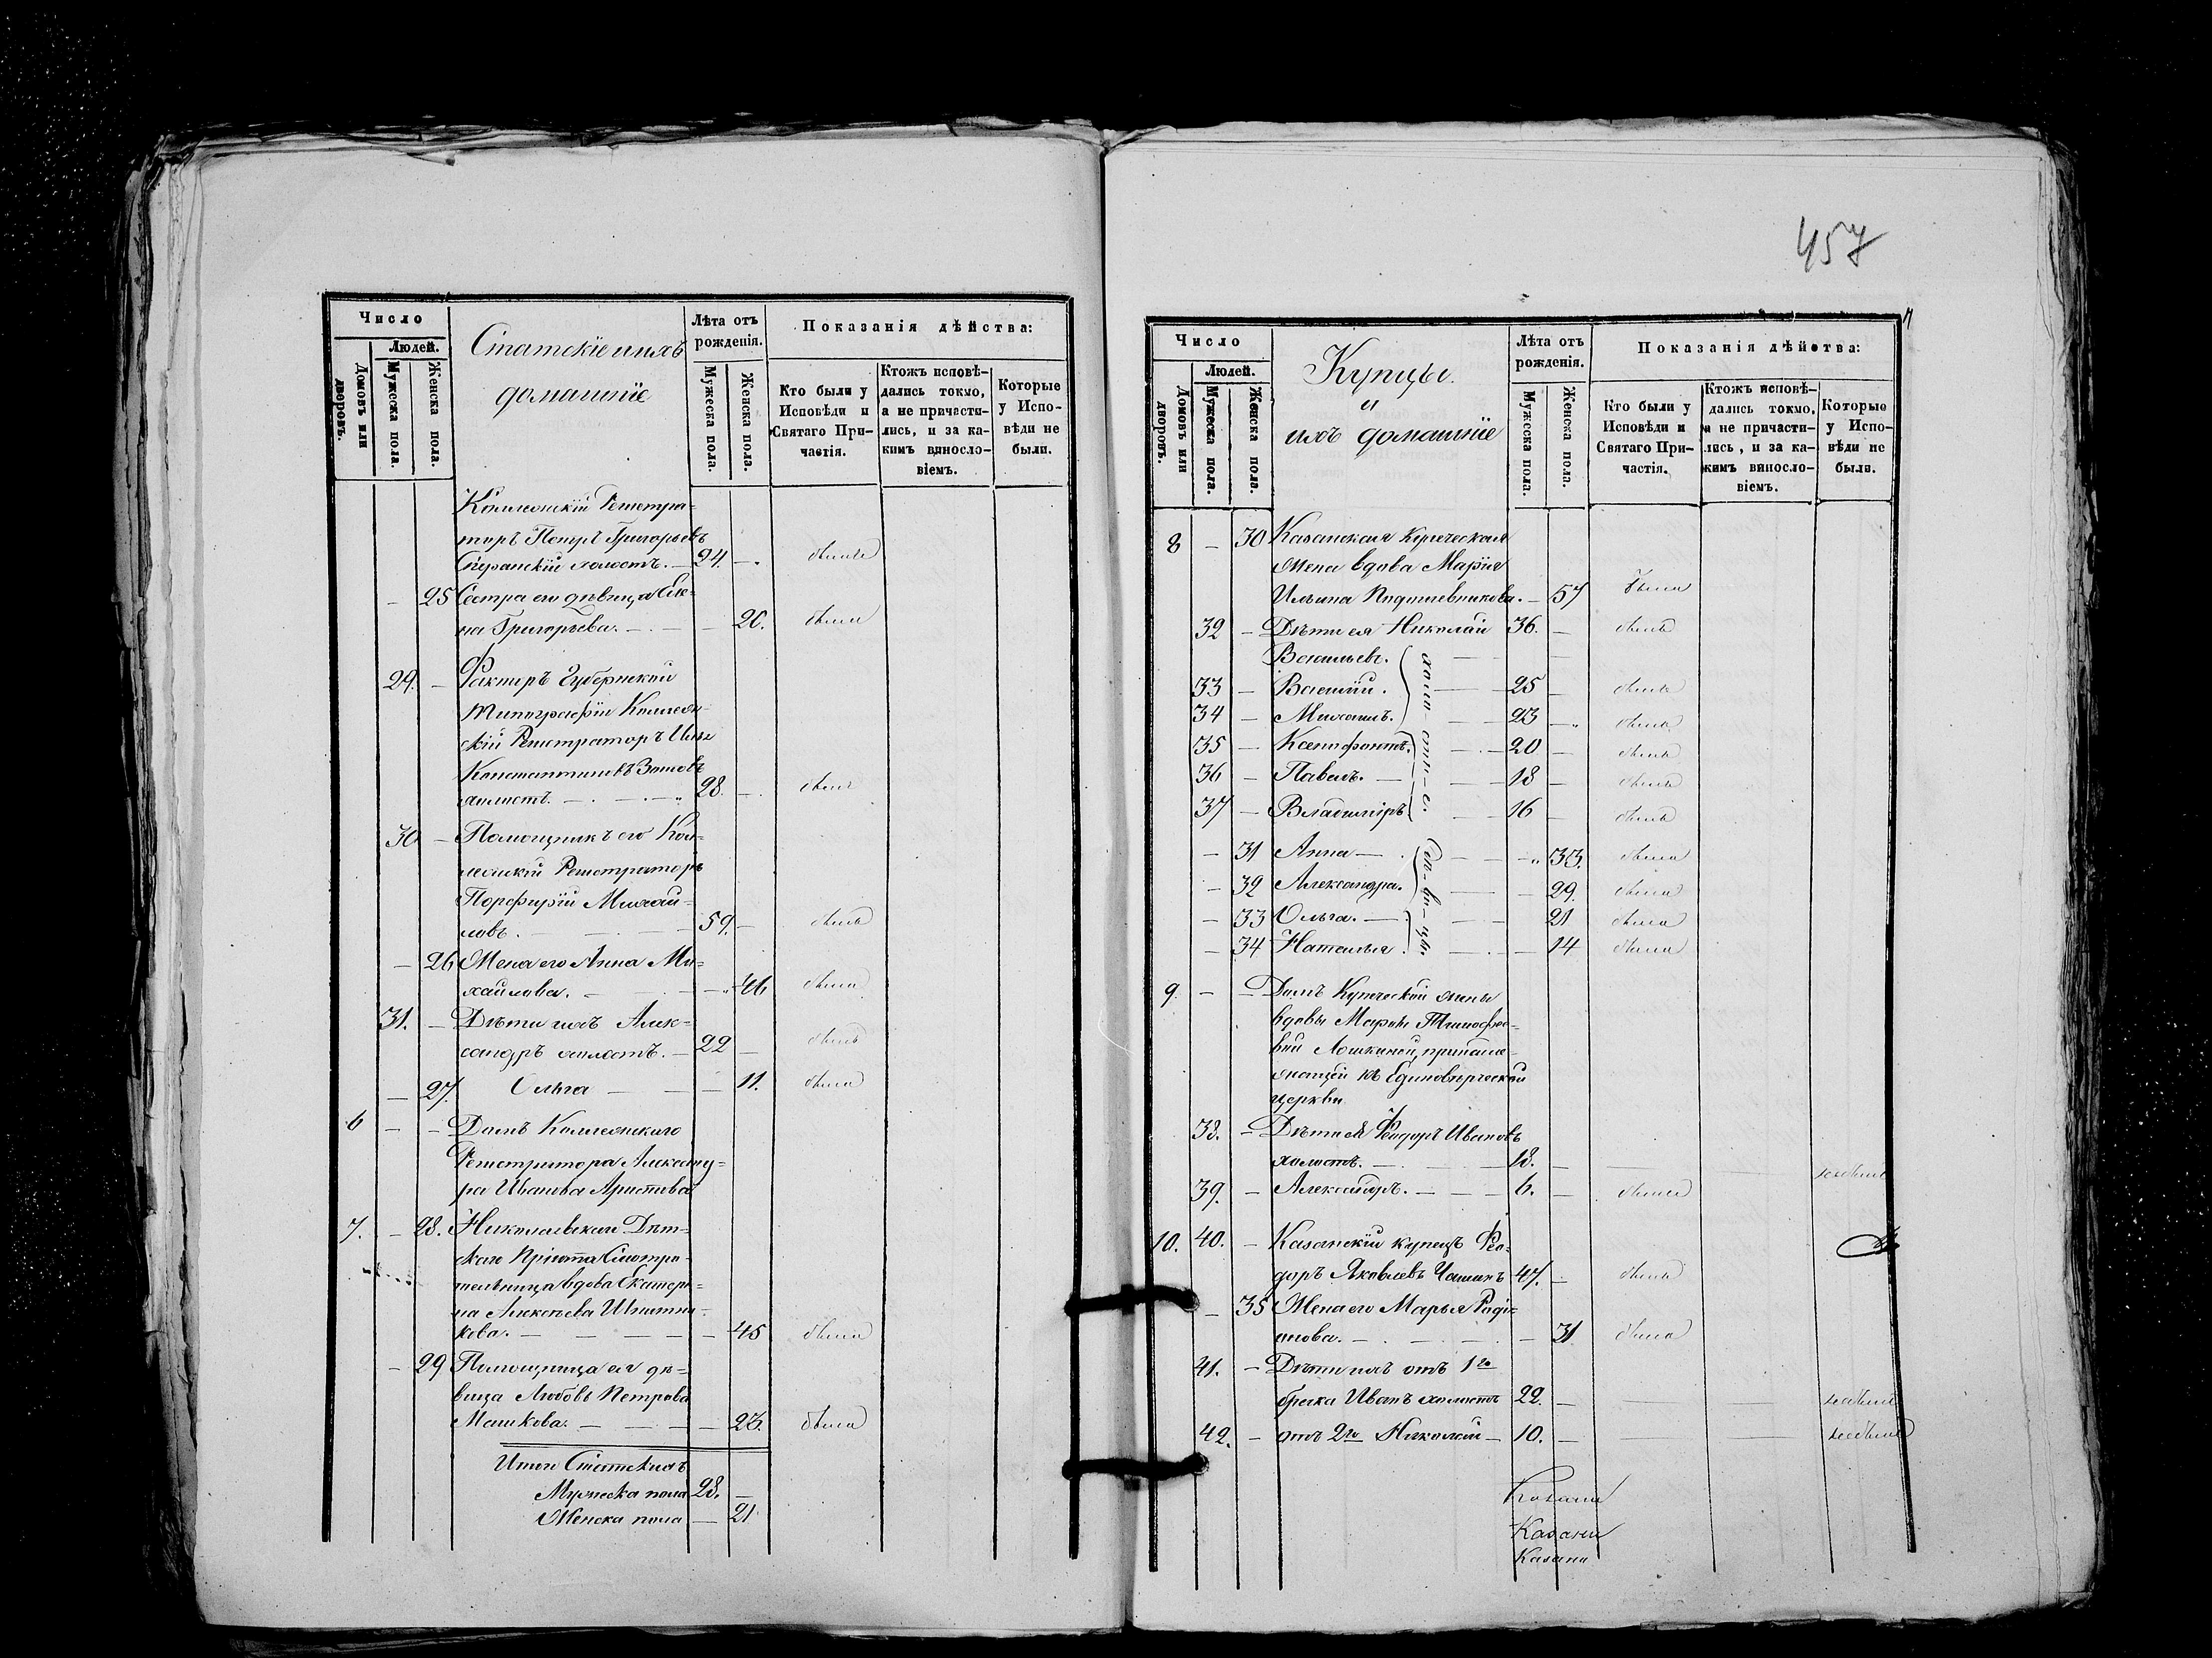 457
Число
Людей.
Домовъ или дворовъ.
Мужеска пола.
Женска пола.
Статскіе и ихъ
домашніе
Лѣта отъ
рожденія.
Мужеска пола.
Женска пола.
Показанія дѣйства:
Кто были у
Исповѣди и
Святаго При-
частія.
Ктожъ исповѣ-
дались токмо,
а не причасти-
лись, и за ка-
кимъ винносло-
віемъ.
Которые
у Испо-
вѣди не
были.
Коллежскій Регистра-
торъ Петръ Григорьевъ
Сперанскій холостъ. 24. былъ
25 Сестра его дѣвица Еле-
на Григорьева. 20. была
29. Факторъ Губернской
Типографіи Коллеж-
скій Регистраторъ
Константиновъ Зотовъ
холостъ. 28. былъ
30 Помощникъ его Кол-
лежскій Регистраторъ
Порфирій Михай-
ловъ. 59. былъ
26 Жена его Анна Ми-
хайлова. 46 была
31. Дѣти ихъ Алек-
сандръ холостъ. 22 былъ
27. Ольга 11. была
6 Домъ Коллежскаго
Регистратора Александ-
ра Иванова Аристова
7. 28. Николаевскаго Дѣт-
скаго Пріюта Смотри-
тельница вдова Екатери-
на Алексѣева
кова. 45 была
29 Помощница ея дѣ-
вица Любовь Петрова
Машкова. 23. была
Итого Статскихъ
Мужеска пола 28.
Женска пола 21
Число
Людей.
Домовъ или дворовъ.
Мужеска пола.
Женска пола.
Купцы
и
ихъ домашніе
Лѣта отъ
рожденія.
Мужеска пола.
Женска пола.
Показанія дѣйства:
Кто были у
Исповѣди и
Святаго При-
частія.
Ктожъ исповѣ-
дались токмо,
и не причасти-
лись, и за ка-
кимъ винносло-
віемъ.
Которые
у Испо-
вѣди не
были.
8 30 Казанская купеческая
жена вдова Марія
Ильина 57 была
32 Дѣти ея Николай 36. былъ
Васильевъ.
33 Василій. 25 былъ
34 Михаилъ. 23 былъ
35 Ксенофонтъ. 20 былъ
36 Павелъ. 18 былъ
37 Владиміръ 16 былъ
холосты-е.
31 Анна 33. была
32 Александра. 29. была
33 Ольга. 21 была
34 Наталья. 14 была
дѣ-ви-цы
9. Домъ Купеческой жены
вдовы Марьи Тимофѣе-
вой Ложкиной, принадле-
жащей къ Единовѣрческой
церкви
38. Дѣти ея Феодоръ Ивановъ
холостъ. 18. небылъ
39. Александръ. 6. былъ
10. 40. Казанскій купецъ Фео-
доръ Яковлевъ Чашинъ 47. былъ
35 Жена его Марья Роді-
онова. 31 была
41. Дѣти ихъ отъ 1го
брака Иванъ холостъ 22. небылъ
42. отъ 2го Николай 10. небылъ
Казани
Казани
Казани